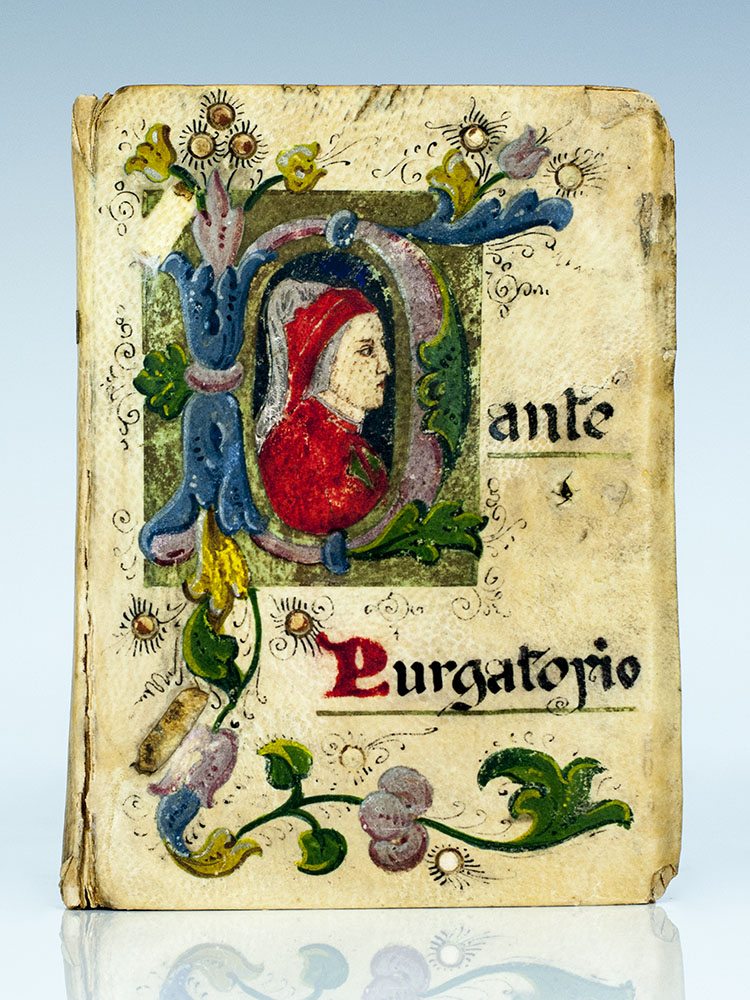 Dante
Purgatorio